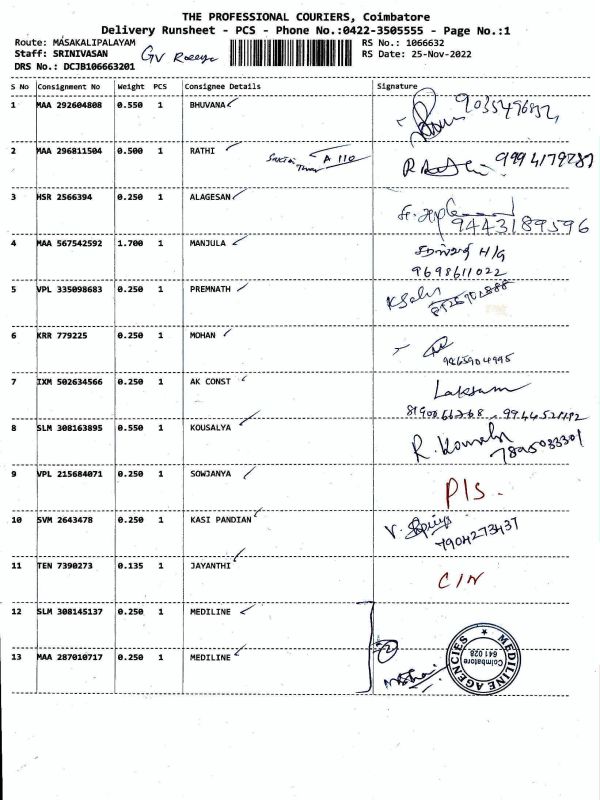 THE PROFESSIONAL COURIERS, Coimbatore
Delivery Runsheet - PCS - Phone No.:0422-3505555 - Page No.:1
Route: MASAKALIPALAYAM RS No.: 1066632
Staff: SRINIVASAN GV RS Date: 25-Nov-2022
DRS No.: DCJB106663201
S No Consignment No Weight PCS Consignee Details Signature
1 MAA 292604808 0.550 1 BHUVANA
2 MAA 296811504 0.500 1 RATHI A 110
3 HSR 2566394 0.250 1 ALAGESAN
9443189596
4 MAA 567542592 1.700 1 MANJULA H/G
9698611022
5 VPL 335098683 0.250 1 PREMNATH
6 KRR 779225 0.250 1 MOHAN
9865904995
7 IXM 502634566 0.250 1 AK CONST
8 SLM 308163895 0.550 1 KOUSALYA
9 VPL 215684071 0.250 1 SOWJANYA P/S.
10 SVM 2643478 0.250 1 KASI PANDIAN V.
7904273437
11 TEN 7390273 0.135 1 JAYANTHI C/N
12 SLM 308145137 0.250 1 MEDILINE
13 MAA 287010717 0.250 1 MEDILINE 2
MEDILINE AGENCIES
Coimbatore
641 028